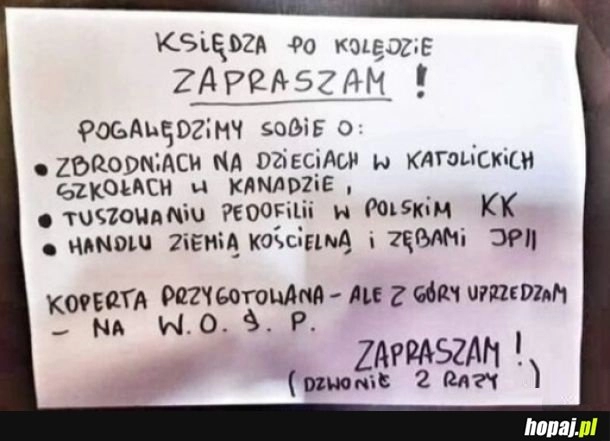 KSIĘDZA PO KOLĘDZIE
ZAPRASZAM !
POGAWĘDZIMY SOBIE O:
● ZBRODNIACH NA DZIECIACH W KATOLICKICH
SZKOŁACH W KANADZIE,
● TUSZOWANIU PEDOFILII W POLSKIM KK
● HANDLU ZIEMIĄ KOŚCIELNĄ i ZĘBAMI JPII
KOPERTA PRZYGOTOWANA - ALE Z GÓRY UPRZEDZAM
- NA W.O.Ś.P.
ZAPRASZAM !
(DZWONIĆ 2 RAZY)
hopaj.pl